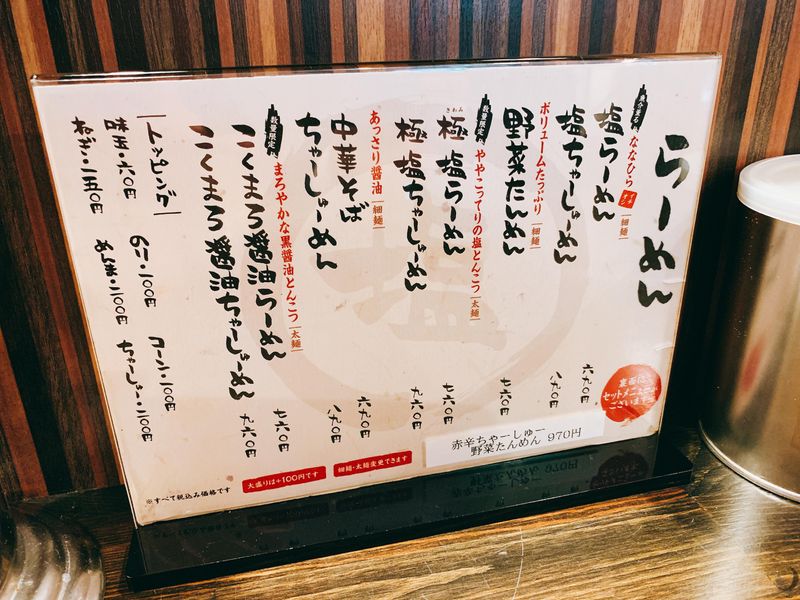 らーめん
ななひら
細麺
塩らーめん 六九〇円
塩ちゃーしゅーめん 八九〇円
ボリュームたっぷり 細麺
野菜たんめん 七六〇円
数量限定
ややこってりの塩とんこつ 太麺
きわみ
極塩らーめん 七六〇円
極塩ちゃーしゅーめん 九六〇円
あっさり醤油 細麺
中華そば 六九〇円
ちゃーしゅーめん 八九〇円
数量限定
まろやかな黒醤油とんこつ 太麺
こくまろ醤油らーめん 七六〇円
こくまろ醤油ちゃーしゅーめん 九六〇円
トッピング
味玉・六〇円
ねぎ・一五〇円
のり・一〇〇円
めんま・二〇〇円
コーン・一〇〇円
ちゃーしゅー・二〇〇円
裏面は
セットメニューが
ございます
赤辛ちゃーしゅー
野菜たんめん 970円
細麺・太麺変更できます
大盛りは+100円です
※すべて税込み価格です
塩